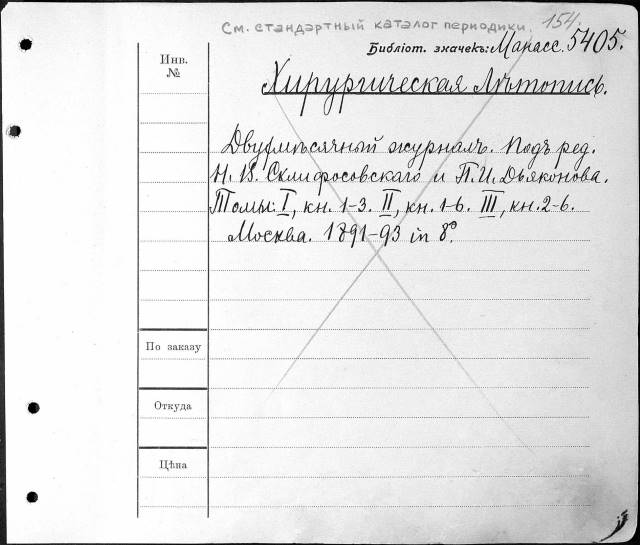 См. стандартный каталог периодики. 154.
Библіот. значекъ: Манасс. 5405.
Инв.
№
Хирургическая Лѣтопись.
Двухмѣсячный журналъ. Подъ ред.
Н. В. Склифосовскаго и П. И. Дьяконова.
Томы: I, кн. 1-3. II, кн. 1-6. III, кн. 2-6.
Москва. 1891-93 in 8º.
По заказу
Откуда
Цѣна